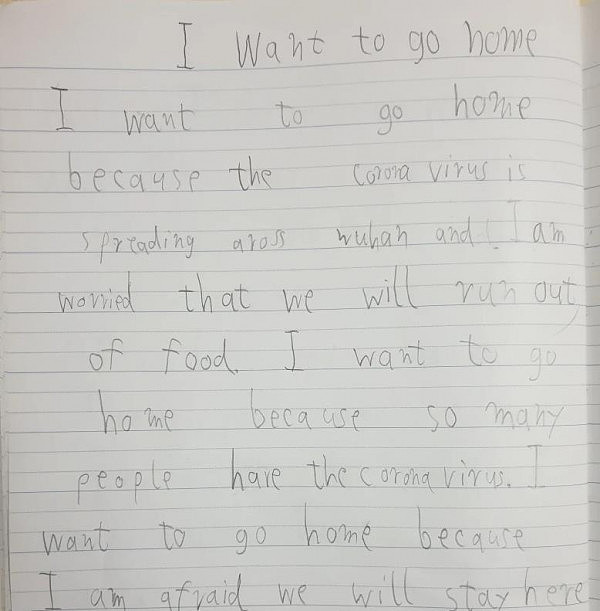 I want to go home
I want to go home
because the corona virus is
spreading aross wuhan and I am
worried that we will run out
of food. I want to go
home because so many
people have the corona virus. I
want to go home because
I am afraid we will stay here